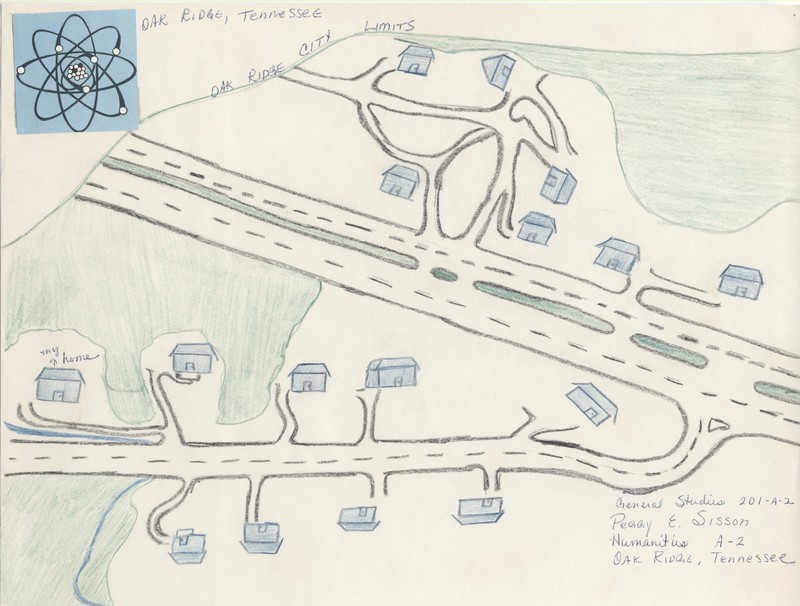 OAK RIDGE, TENNESSEE
OAK RIDGE CITY LIMITS
my home
General Studies 201-A-2
Peggy E. Sisson
Humanities A-2
OAK RIDGE, TENNESSEE